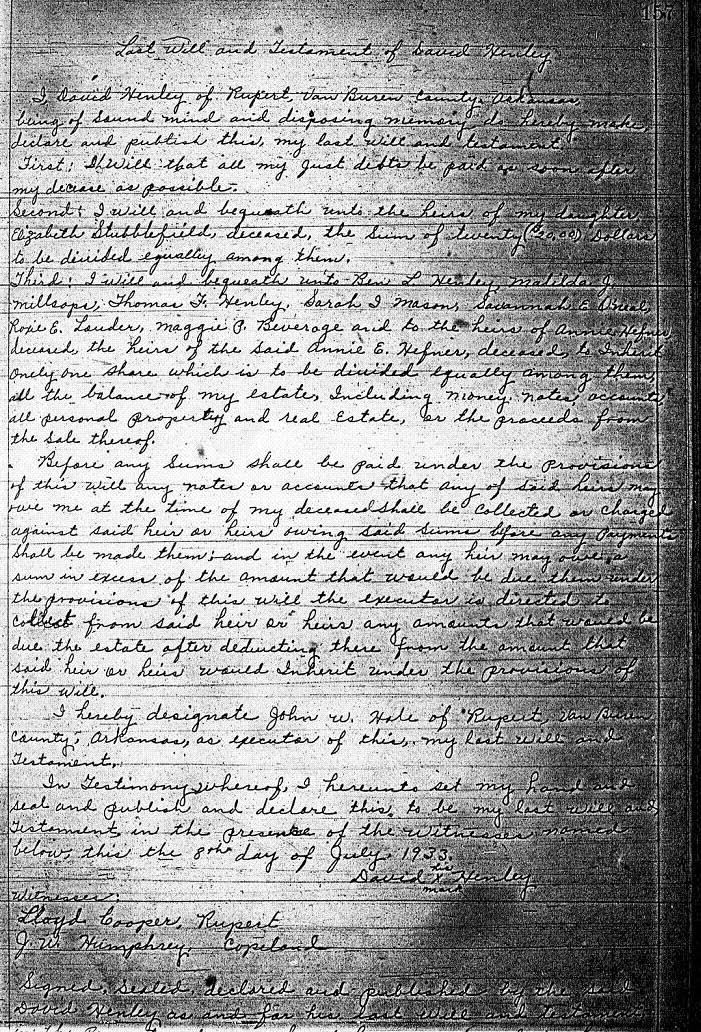 157
Last Will and Testament of David Henley
I, David Henley of Rupert, Van Buren County, Arkansas,
being of sound mind and disposing memory, do hereby make,
declare and publish this, my last will and testament.
First: I Will that all my just debts be paid as soon after
my decease as possible.
Second: I will and bequeath unto the heirs of my daughter
Elizabeth Stubblefield, deceased, the sum of twenty ($20.00) Dollars
to be divided equally among them.
Third: I will and bequeath unto Ben L Henley, Matilda J.
Millsops, Thomas F. Henley, Sarah I Mason, Savannah E
Roxie E. Lauder, Maggie P. Beverage and to the heirs of Annie Hefner
deceased, the heirs of the said Annie E. Hefner, deceased, to Inherit
only one share which is to be divided equally among them,
all the balance of my estate, Including money, notes, accounts,
all personal property and real Estate, or the proceeds from
the sale thereof.
Before any Sums shall be paid under the provisions
of this will any notes or accounts that any of said heirs may
owe me at the time of my deceased shall be Collected or Charged
against said heir or heirs owing said sums before any Payments
shall be made them; and in the event any heir may owe a
sum in excess of the amount that would be due them under
the provisions of this will the executor is directed to
Collect from said heir or heirs any amounts that would be
due the estate after deducting there from the amount that
said heir or heirs would Inherit under the provisions of
this will.
I hereby designate John W. Hale of Rupert, Van Buren
County, Arkansas, as executor of this, my last will and
Testament.
In Testimony whereof, I hereunto set my hand and
seal and publish and declare this, to be my last will and
Testament, in the presence of the witnesses named
below, this the 8th day of July 1933.
his
David X Henley
mark
Witnesses:
Lloyd Cooper, Rupert
J. W. Humphrey, Copeland
Signed, Sealed, declared and published by the said
David Henley as and for his last will and testament